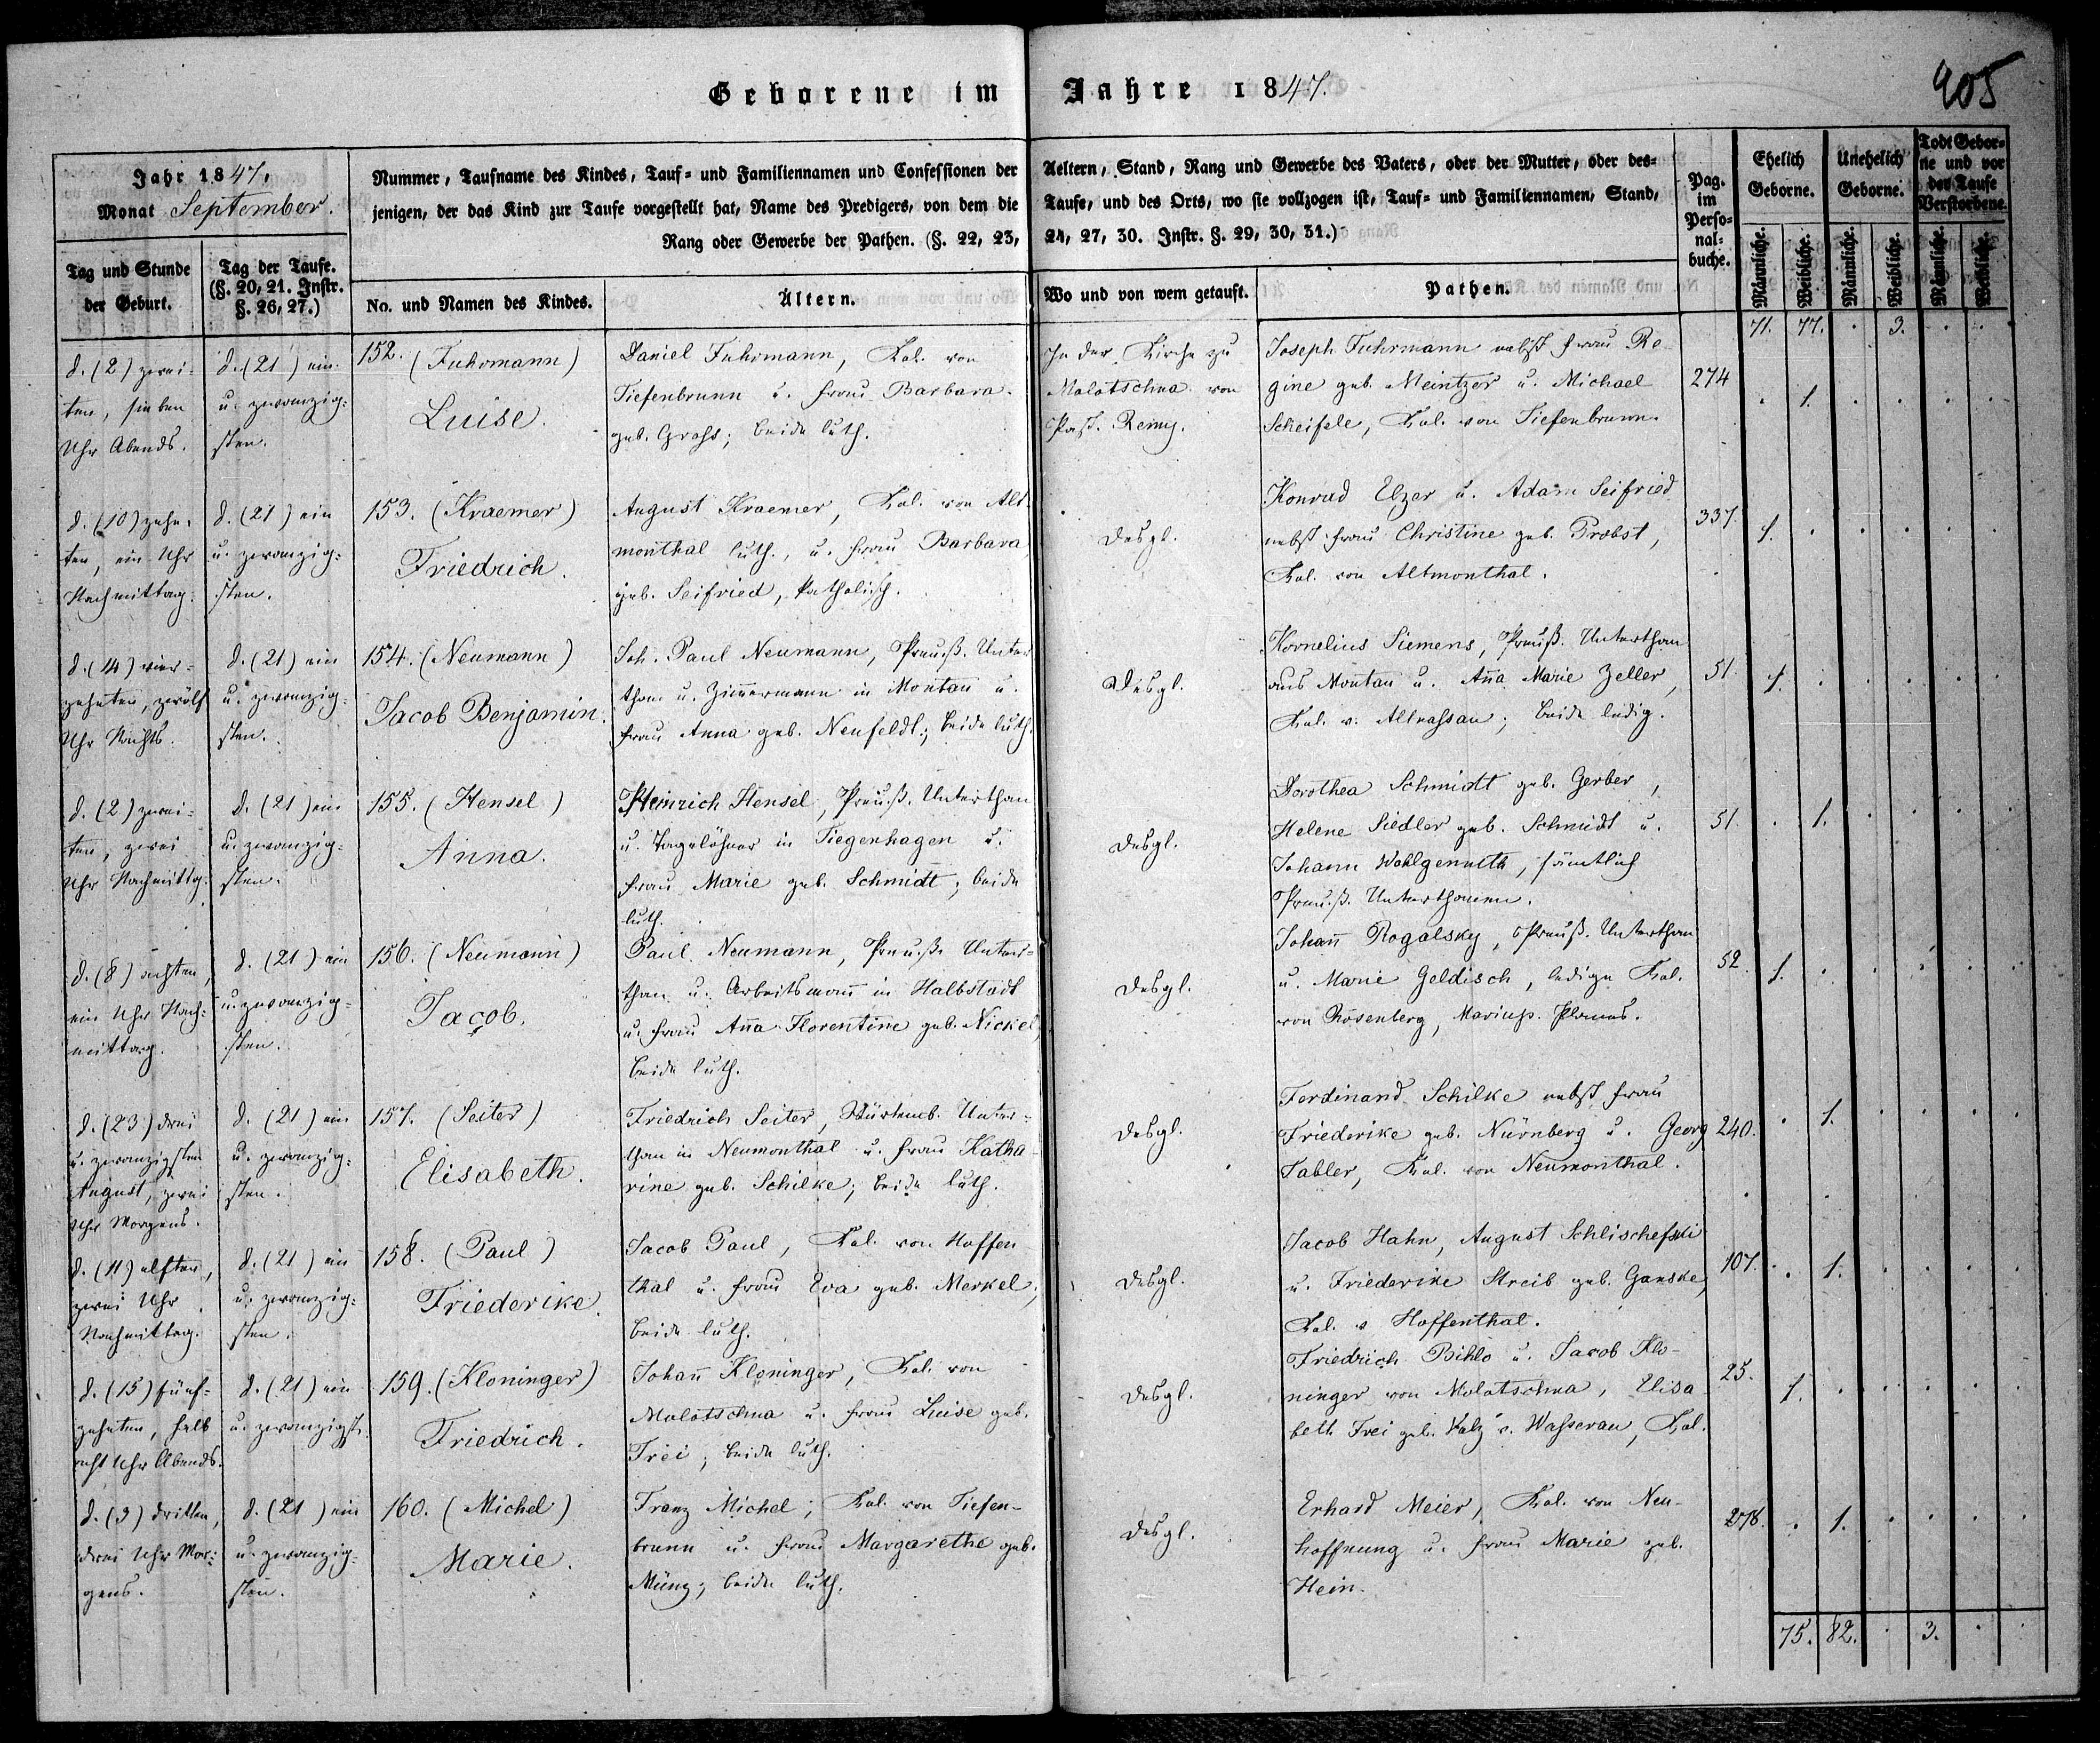 Geborene im Jahre 1847.
905
Jahr 1847.
Monat September.
Tag und Stunde
der Geburt.
Tag der Taufe.
(§. 20, 21. Instr.
§. 26, 27.)
Nummer, Taufname des Kindes, Tauf= und Familiennamen und Confessionen der Aeltern, Stand, Rang und Gewerbe des Vaters, oder der Mutter, oder des=
jenigen, der das Kind zur Taufe vorgestellt hat, Name des Predigers, von dem die Taufe, und des Orts, wo sie vollzogen ist, Tauf= und Familiennamen, Stand,
Rang oder Gewerbe der Pathen. (§. 22, 23, 24, 27, 30. Instr. §. 29, 30, 31.)
No. und Namen des Kindes.
Ältern.
Wo und von wem getauft.
Pathen.
Pag.
im
Perso=
nal=
buche.
Ehelich
Geborne.
Unehelich
Geborne.
Todt Gebor=
ne und vor
der Taufe
Verstorbene.
Männliche.
Weibliche.
Männliche.
Weibliche.
Männliche.
Weibliche.
71. 77. . 3. . .
d. (2) zwei=
ten, sieben
Uhr Abends.
d. (21) ein
u. zwanzig=
sten.
152. (Fuhrmann)
Luise.
Daniel Fuhrmann, Kol. von
Tiefenbrunn u. Frau Barbara
geb. Gross; beide luth.
In der Kirche zu
Molotschna von
Past. Remy.
Joseph Fuhrmann nebst Frau Re-
gine geb. Meintzer u. Michael
Scheifele, Kol. von Tiefenbrunn.
274
. 1. . . . .
d. (10) zehn=
ten, ein Uhr
Nachmittag.
d. (21) ein
u. zwanzig=
sten.
153. (Kraemer)
Friedrich.
August Kraemer, Kol. von Alt-
monthal luth., u. Frau Barbara
geb. Seifried, katholisch.
desgl.
Konrad Elzer u. Adam Seifried
nebst Frau Christine geb. Probst,
Kol. von Altmonthal.
337.
1. . . . . .
d. (14) vier=
zehnten, zwölf
Uhr Nachts.
d. (21) ein
u. zwanzig=
sten.
154. (Neumann)
Jacob Benjamin.
Joh. Paul Neumann, Preuß. Unter
than u. Zimermann in Montau u.
Frau Anna geb. Neufeldt; beide luth.
desgl.
Kornelius Siemens, Preuß. Unterthan
aus Montau u. Ana Marie Zeller,
Kol. v. Altnassau; beide ledig.
51.
1. . . . . .
d. (2) zwei=
ten, zwei
Uhr Nachmittg.
d. (21) ein
u. zwanzig=
sten.
155. (Hensel)
Anna.
Heinrich Hensel, Preuß. Unterthan
u. Tagelöhner in Tiegenhagen u.
Frau Marie geb. Schmidt; beide
luth.
desgl.
Dorothea Schmidt geb. Gerber,
Helene Siedler geb. Schmidt u.
Johann Wohlgemuth, sämtlich
Preuß. Unterthanen.
51.
. 1. . . . .
d. (8) achten,
ein Uhr Nach=
mittag.
d. (21) ein
u. zwanzig=
sten.
156. (Neumann)
Jacob.
Paul Neumann, Preuß. Unter=
than u. Arbeitsmann in Halbstadt
u. Frau Ana Florentine geb. Nickel,
beide luth.
desgl.
Johann Rogalsky, Preuß. Unterthan
u. Marie Geldisch, ledige Kol.
von Rosenberg, Mariup. Planes.
52.
1. . . . . .
d. (23) drei
u. zwanzigsten
August, zwei
Uhr Morgens.
d. (21) ein
u. zwanzig=
sten.
157. (Seiter)
Elisabeth.
Friedrich Seiter, Würtemb. Unter=
than in Neumonthal u. Frau Katha
rine geb. Schilke; beide luth.
desgl.
Ferdinand Schilke nebst Frau
Friederike geb. Nürnberg u. Georg
Tabler, Kol. von Neumonthal.
240.
. 1. . . . .
d. (11) elften,
zwei Uhr
Nachmittag.
d. (21) ein
u. zwanzig=
sten.
158. (Paul)
Friederike.
Jacob Paul, Kol. von Hoffen
thal u. Frau Eva geb. Merkel;
beide luth.
desgl.
Jacob Hahn, August Schlischefski
u. Friederike Streib geb. Ganske,
Kol. v. Hoffenthal.
107.
. 1. . . . .
d. (15) fünf=
zehnten, halb
acht Uhr Abends.
d. (21) ein
u. zwanzigst.
159. (Kloninger)
Friedrich.
Johann Kloninger, Kol. von
Molotschna u. Frau Luise geb.
Frei; beide luth.
desgl.
Friedrich Bihlo u. Jacob Klo-
ninger von Molotschna, Elisa
beth Frei geb. v. Wasserau, Kol.
25.
1. . . . . .
d. (3) dritten,
drei Uhr Mor=
gens.
d. (21) ein
u. zwanzig=
sten.
160. (Michel)
Marie.
Franz Michel; Kol. von Tiefen-
brunn u. Frau Margarethe geb.
Münz; beide luth.
desgl.
Erhard Meier, Kol. von Neu-
hoffnung u. Frau Marie geb.
Hein.
278.
. 1. . . . .
75. 82. . 3. . .